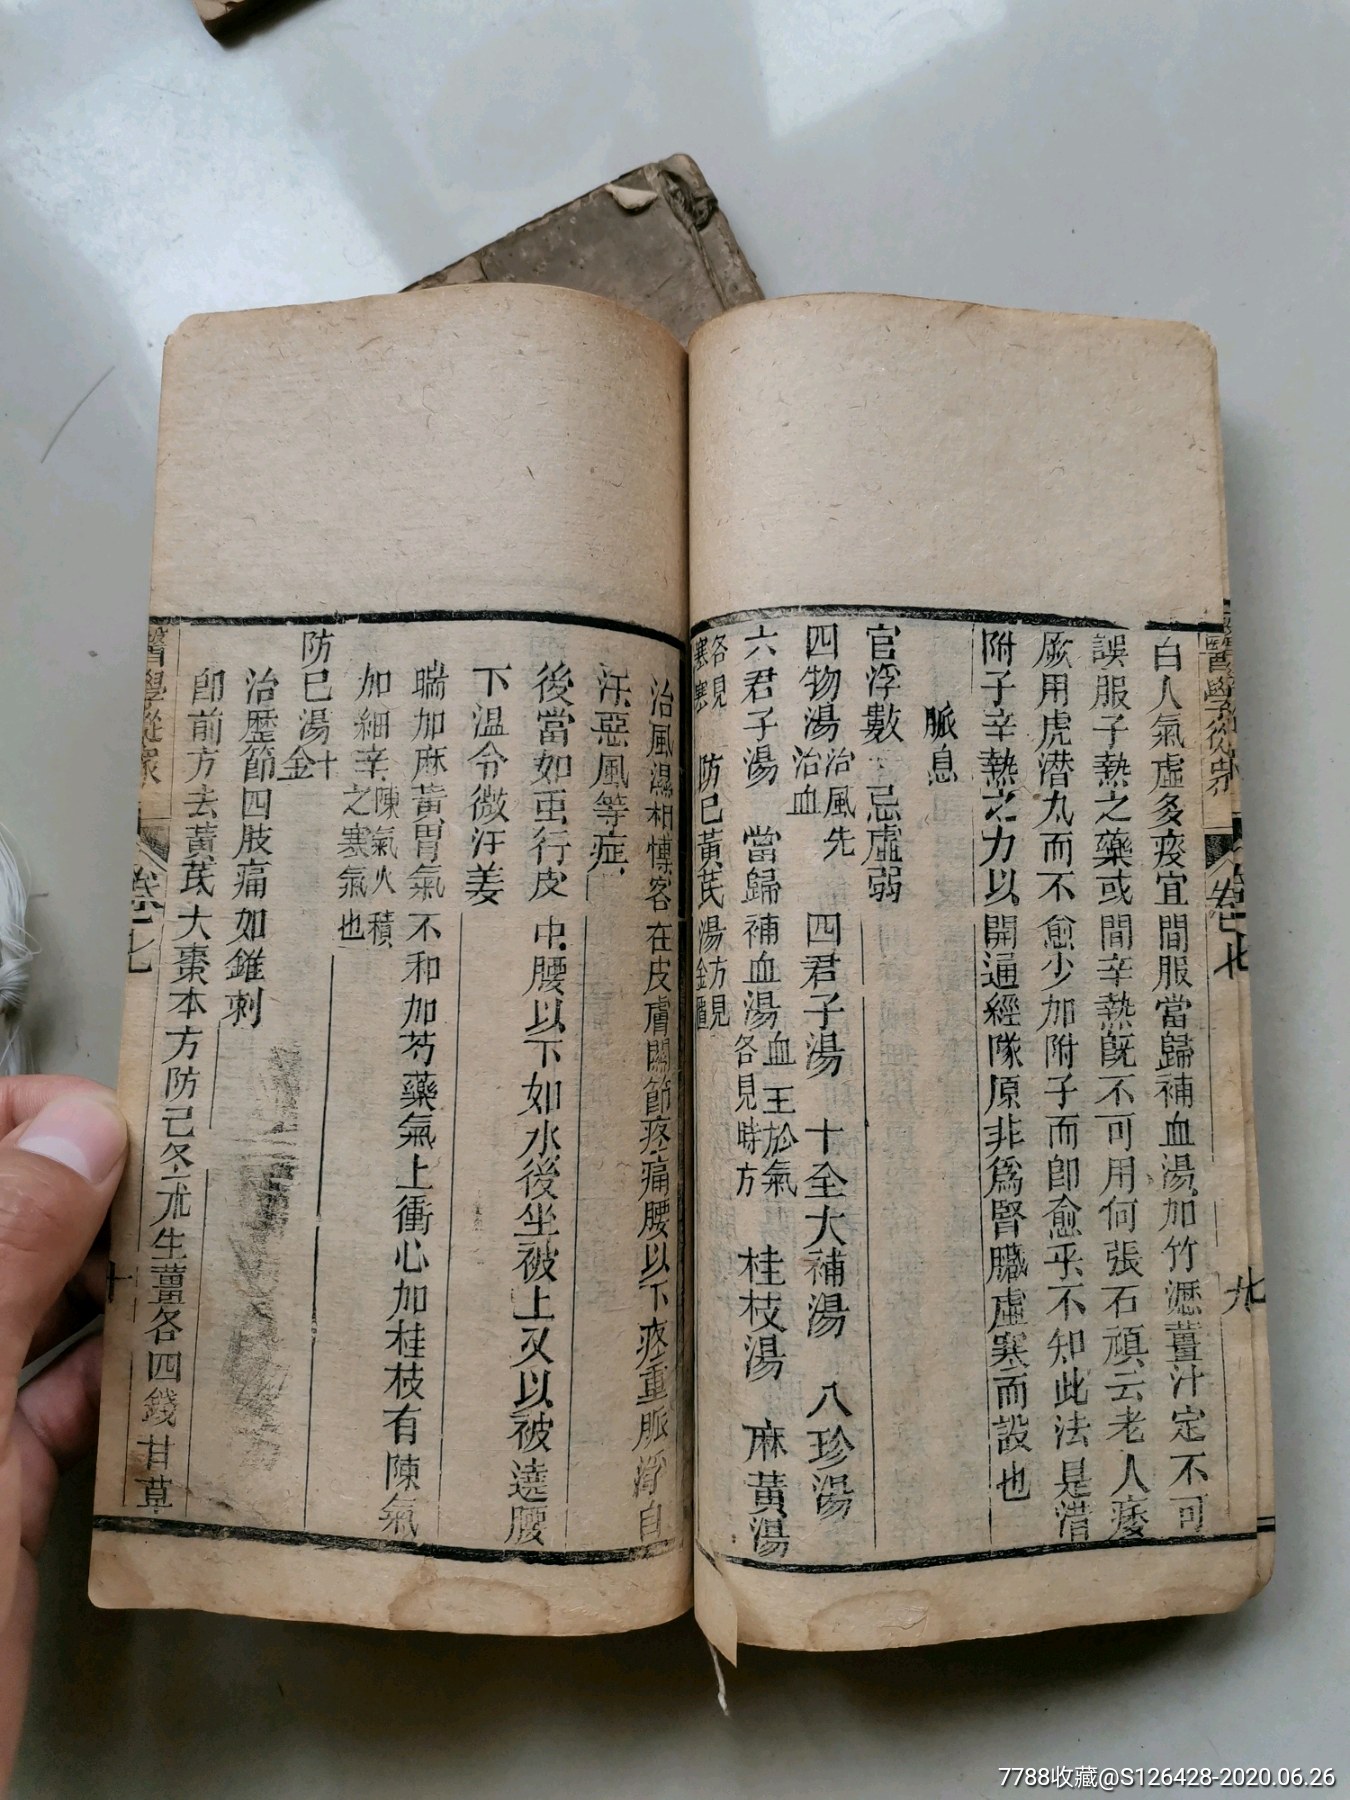 白人氣虛多痰宜間服當歸補血湯加竹瀝薑汁定不可
誤服子熱之藥或間辛熱旣不可用何張石頑云老人痿
厥用虎潜丸而不愈少加附子而卽愈乎不知此法是借
附子辛熱之力以開通經隊原非爲腎臓虛寒而設也
脈息
官浮數 忌虛弱
四物湯治風先治血 四君子湯 十全大補湯 八珍湯
六君子湯 當歸補血湯血王於氣各見時方 桂枝湯 麻黃湯
各見寒 防巳黃芪湯方見金匱
治風濕相慱客在皮膚關節疼痛腰以下疼重脈浮自
汗惡風等症
後當如虫行皮中腰以下如水後坐被上又以被遶腰
下温令微汗差
喘加麻黃胃氣不和加芍藥氣上衝心加桂枝有陳氣
加細辛陳氣火積之寒氣也
防巳湯千金
治歷節四肢痛如錐刺
卽前方去黃芪大棗本方防己
生薑各四錢甘草
醫學從衆
卷七
九
醫學從衆
卷七
十
7788收藏@S126428-2020.06.26